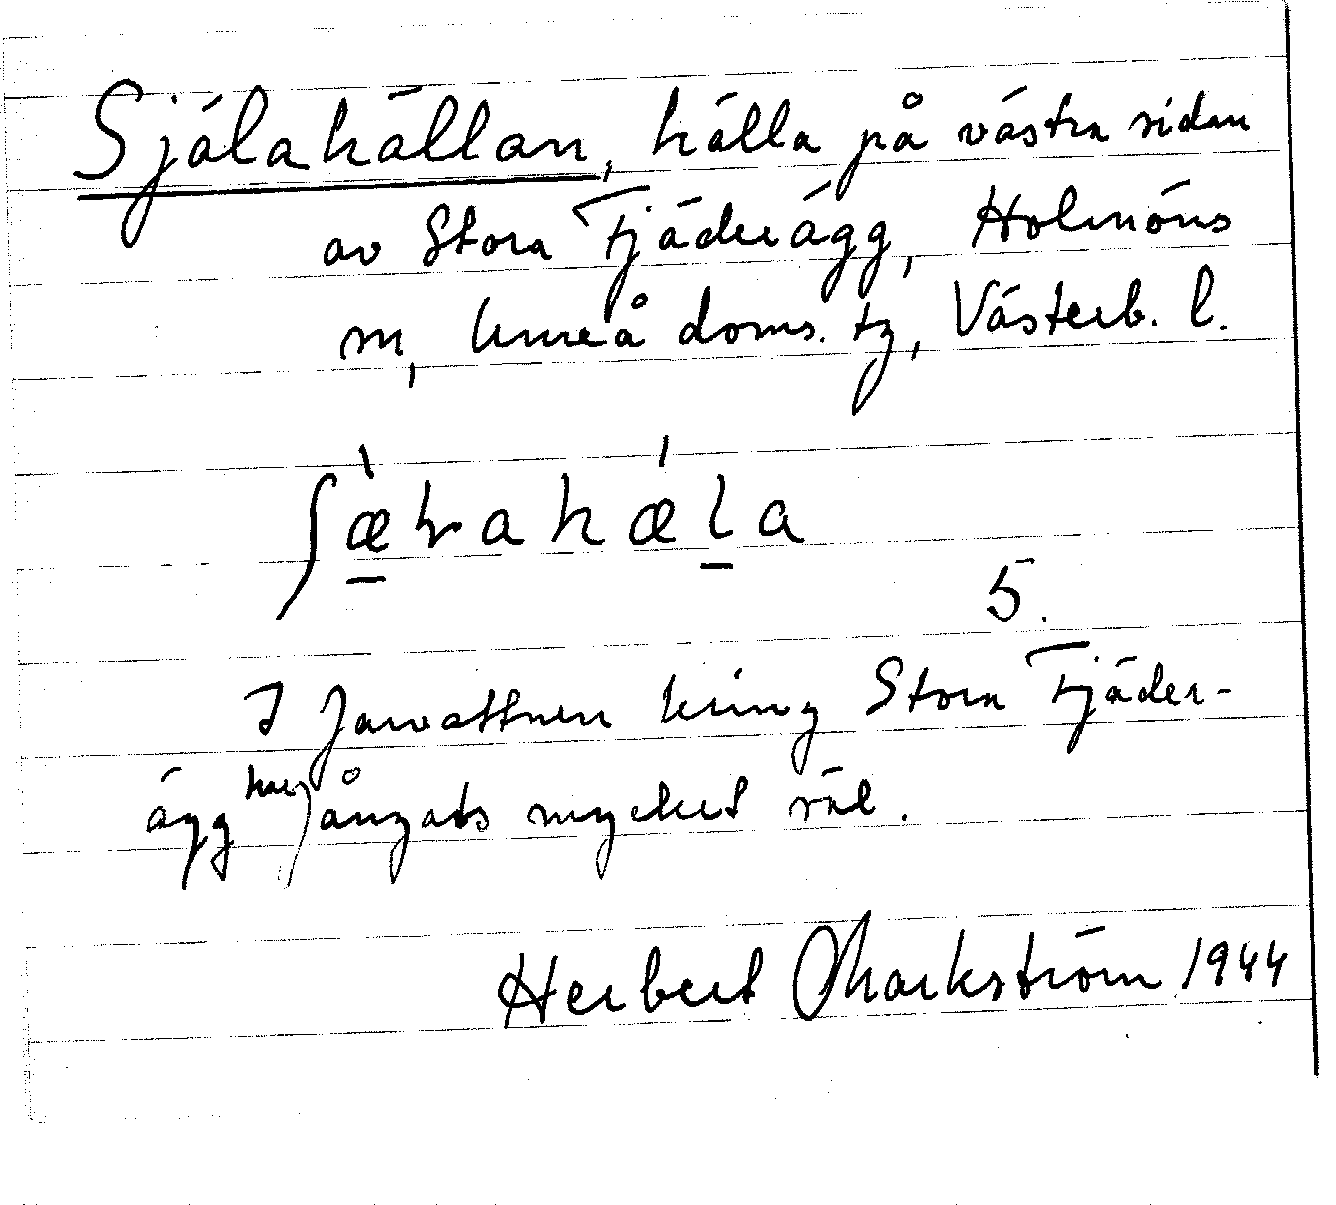 Själahällan, hälla på västra sidan
av Stora Fjäderägg, Holmöns
sn, Umeå doms. tg, Västerb. l.
ʃæ̱̀ɽahǽḻa
5.
I farvattnen kring Stora Fjäder-
ägg har fångats mycket säl.
Herbert Markström 1944